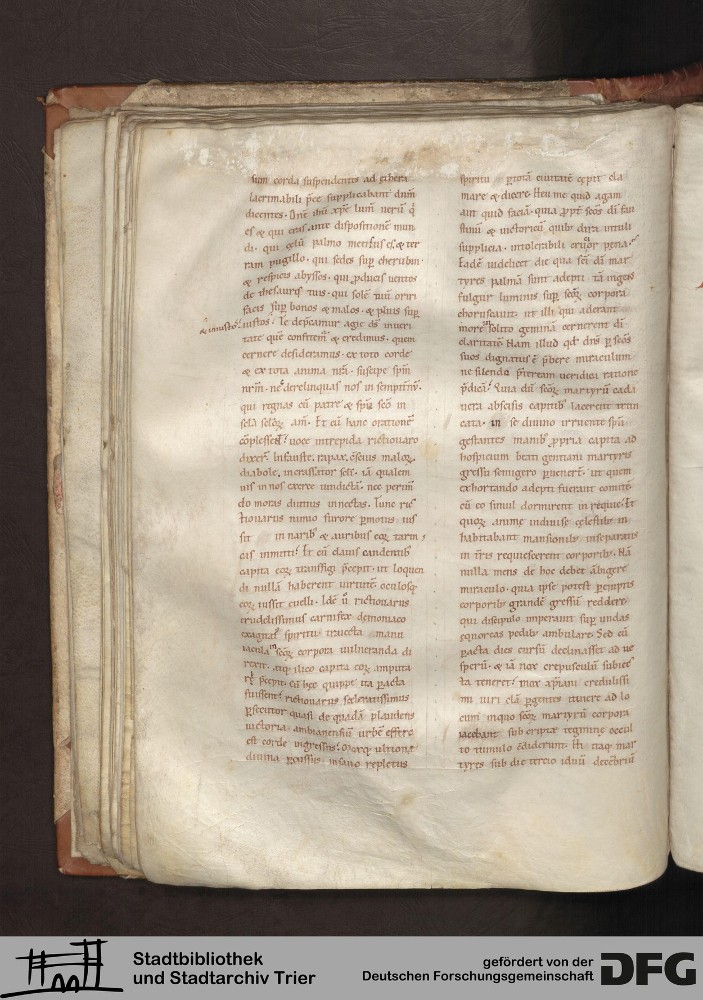 sum corda suspendentes ad ethera
lacrimabili p̄ce supplicabant dn̄m
dicentes. Dn̄e ihū xp̄e lum̄ verū q̄
es & qui eras ante dispositionē mun
di. qui celū palmo mensus es. & ter
ram pugillo. qui sedes sup̄ cherubin.
& respicis abyssos. qui p̄ducis ventos
de thesauris tuis. qui solē tuū oriri
facis sup̄ bonos & malos. & pluis sup̄
& iniustos.
iustos. Te dep̄camur agie ds̄ in veri
tate quē confitem̄ & credimus. quem
cernere desideramus. ex toto corde
& ex tota anima nr̄a. suscipe spm̄
nr̄m. ne derelinquas nos in sempitnū.
qui regnas cū patre & spū scō in
sc̄la sc̄loꝝ am̄. Et cū hanc orationē
cōplessent. voce intrepida rictiouaro
dixer̄. Infauste. rapax. cōscius maloꝝ.
diabole. incrassator
vis in nos exerce vindictā. nec permit
do moras diutius innectas. Tunc ric
tiouarus nimio furore p̄motus ius
sit in narib; & aurib; eoꝝ tarin
cas inmitti. Et cū clavis candentib;
capita eoꝝ transfigi p̄cepit. ut loquen
di nullā haberent virtutē. oculosq;
eoꝝ iussit evelli. Idē ū rictiouarus
crudelissimus carnifex demoniaco
exagitat spiritu. traiecta manu
iacula in scōꝝ corpora vulneranda di
rexit. atq; ilico capita eoꝝ amputa
ri p̄cepit. Cū hec quippe ita p̄acta
fuissent. rictiouarus sceleratissimus
p̄secutor quasi de quadā plaudens
victoria ambianensiū urbē effero
est corde ingressus. Moxq; ultione
divina p̄cussus. insano repletus
spiritu p̄ totā civitatē cepit cla
mare & dicere. Heu me quid agam
aut quid faciā. quia p̄pt̄ scōs dī fus
tianū & victoricū quib; dira intuli
supplicia. intolerabili crucior pena.
Eadē videlicet die qua sc̄i dī mar
tyres palmā sunt adepti. tā ingens
fulgur luminis sup̄ scōꝝ corpora
choruscavit. ut illi qui aderant
more insolito geminā cernerent dī
claritatē. Nam illud qd̄ dn̄s p̄ scōs
suos dignatus ē p̄bere miraculum
ne silendo p̄teream veridica ratione
p̄dicā. Quia dū scōꝝ martyrū cada
vera abscisis capitib; iacerent trun
cata. in se divino irruente spū
gestantes manib; p̄pria capita ad
hospicium beati gentiani martyris
gressu semigero p̄venert. ut quem
exhortando adepti fuerant comitē
cū eo simul dormirent in requie. Et
quoꝝ anime indivise celestib; in
habitabant mansionib; inseparatis
in t̄ris requiescerent corporib;. Nā
nulla mens de hoc debet ābigere
miraculo. quia ipse potest p̄emptis
corporib; grandē gressū reddere.
qui discipulo imperavit sup̄ undas
equoreas pedib; ambulare. Sed cū
p̄acta dies cursū declinasset ad ve
sperū. & iā nox crepusculū subiec
ta teneret. mox xp̄iani credulissi
mi viri clā p̄gentes tivere ad lo
cum in quo scōꝝ martyrū corpora
iacebant sub cripte tegmine occul
to tumulo cōdiderunt. Hi itaq; mar
tyres sub die tercio iduū decēbriū
Stadtbibliothek
und Stadtarchiv Trier
gefördert von der
Deutschen Forschungsgemeinschaft
DFG